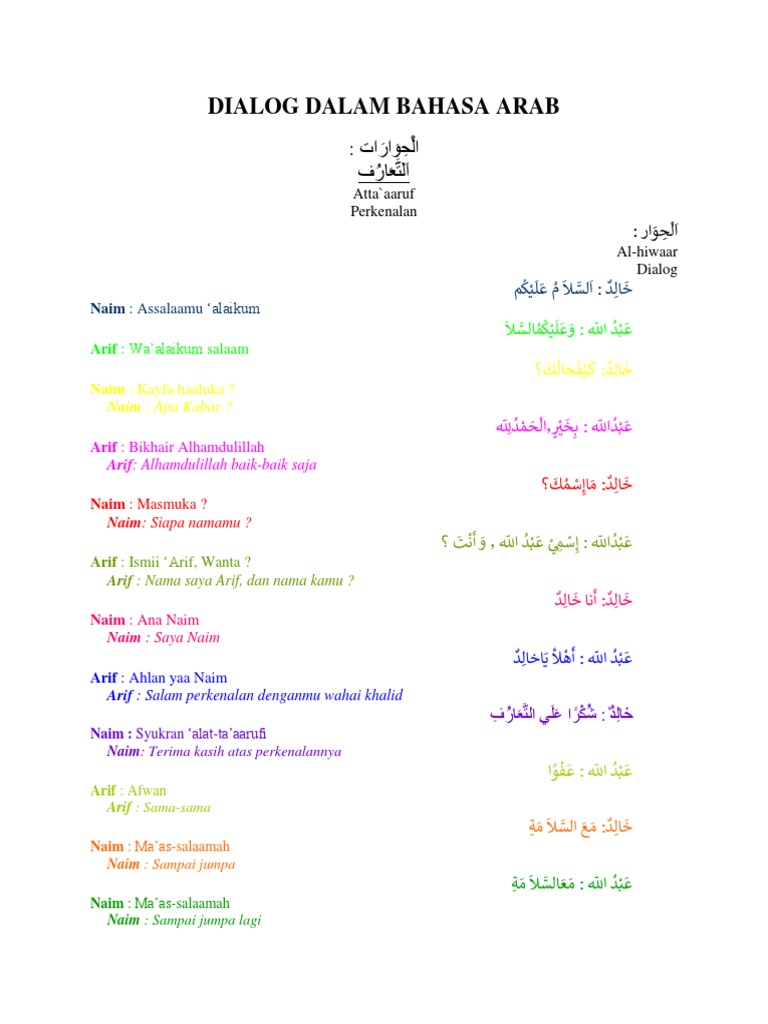 DIALOG DALAM BAHASA ARAB
الْحِوَارَات :
اَلتَّعَارُف
Atta`aaruf
Perkenalan
اَلْحِوَار :
Al-hiwaar
Dialog
خَالِدٌ : اَلسَّلاَ مُ عَلَيْكُم
Naim : Assalaamu ‘alaikum
عَبْدُ الله : وَعَلَيْكُمُالسَّلاَ
Arif : Wa’alaikum salaam
خَالِدٌ: كَيْفَحَالُكَ؟
Naim : Kayfa haaluka ?
Naim : Apa Kabar ?
عَبْدُالله : بِخَيْرٍ,الْحَمْدُلِلّه
Arif : Bikhair Alhamdulillah
Arif: Alhamdulillah baik-baik saja
خَالِدٌ: مَاإِسْمُكَ؟
Naim : Masmuka ?
Naim: Siapa namamu ?
عَبْدُالله : إِسْمِيْ عَبْدُ الله , وَ أَنْتَ ؟
Arif : Ismii ‘Arif, Wanta ?
Arif : Nama saya Arif, dan nama kamu ?
خَالِدٌ: أَنا خَالِدٌ
Naim : Ana Naim
Naim : Saya Naim
عَبْدُ الله : أَهْلاْ يَاخالِدٌ
Arif : Ahlan yaa Naim
Arif : Salam perkenalan denganmu wahai khalid
خْالِدٌ : شُكْرًا عَلَي التَّعَارُفِ
Naim : Syukran ‘alat-ta’aarufi
Naim: Terima kasih atas perkenalannya
عَبْدُ الله : عَفْوًا
Arif : Afwan
Arif : Sama-sama
خَالِدٌ: مَعَ السَّلاَ مَةِ
Naim : Ma’as-salaamah
Naim : Sampai jumpa
عَبْدُ الله : مَعَالسَّلاَ مَةِ
Naim : Ma’as-salaamah
Naim : Sampai jumpa lagi